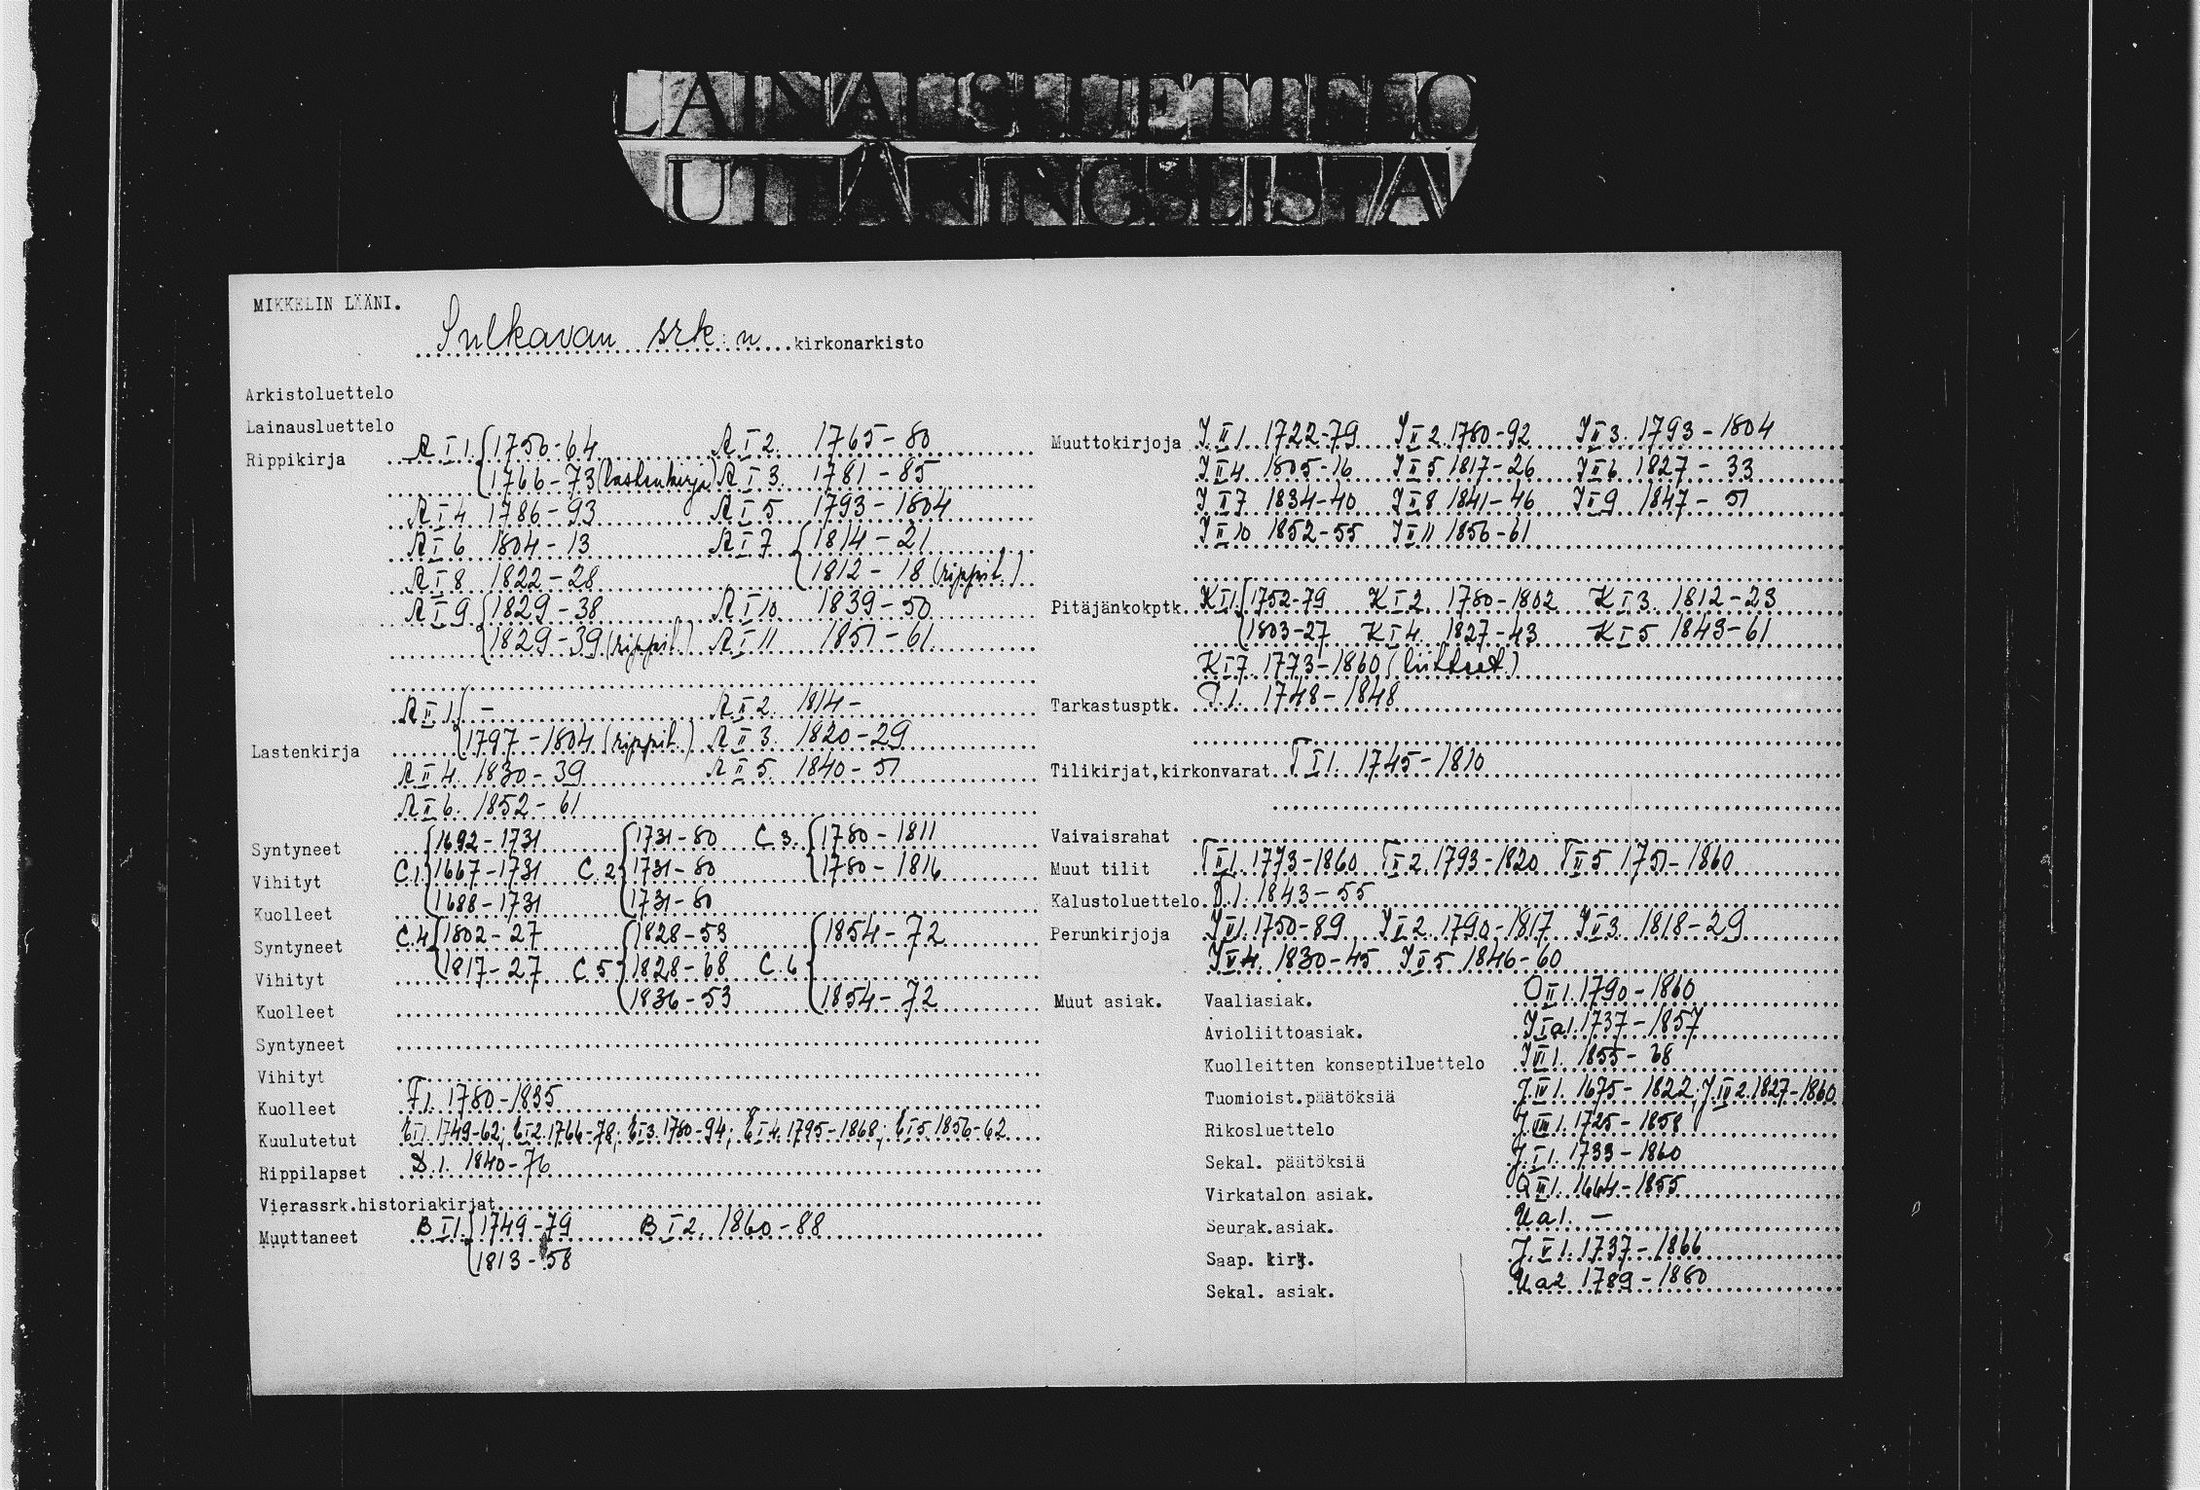 LAINAUSLUETTELO
UTLÅNINGSLISTA
MIKKELIN LÄÄNI.
Sulkavan srk:n kirkonarkisto
Arkistoluettelo
Lainausluettelo
Rippikirja A I 1. {1750-64 A I 2. 1765-80
{1766-73 (lastenkirja) A I 3. 1781-85
A I 4 1786-93 A I 5 1793-1804
A I 6 1804-13 A I 7 {1814-21
A I 8 1822-28 {1812-18 (rippil.)
A I 9 {1829-38 A I 10 1839-50
{1829-39 (rippil.) A I 11 1851-61
A II 1. { - A II 2. 1814-
Lastenkirja {1797-1804 (rippil.) A II 3. 1820-29
A II 4. 1830-39 A II 5. 1840-51
A II 6. 1852-61
Syntyneet {1692-1731 {1731-80 C 3. {1780-1811
Vihityt C.1. {1667-1731 C.2 {1731-80 {1780-1816
Kuolleet {1688-1731 {1731-80
Syntyneet C.4 {1802-27 {1828-53 {1854-72
Vihityt {1817-27 C 5 {1828-68 C.6 {
Kuolleet {1836-53 {1854-72
Syntyneet
Vihityt
Kuolleet F1. 1780-1835
Kuulutetut E I 1. 1749-62; E I 2. 1766-78; E I 3. 1780-94; E I 4. 1795-1868; E I 5 1856-62
Rippilapset D.1. 1840-76
Vierassrk.historiakirjat
Muuttaneet B I 1. {1749-79 B I 2. 1860-88
{1813-58
Muuttokirjoja J II 1. 1722-79 J II 2. 1780-92 J II 3. 1793-1804
J II 4 1805-16 J II 5 1817-26 J II 6 1827-33
J II 7 1834-40 J II 8 1841-46 J II 9 1847-51
J II 10 1852-55 J II 11 1856-61
Pitäjänkokptk. K I 1. {1752-79 K I 2. 1780-1802 K I 3. 1812-23
{1803-27 K I 4. 1827-43 K I 5 1843-61
K I 7. 1773-1860 (liitteet.)
Tarkastusptk. P.1. 1748-1848
Tilikirjat,kirkonvarat T I 1. 1745-1810
Vaivaisrahat
Muut tilit T II 1. 1773-1860 T II 2. 1793-1820 T II 5 1751-1860
Kalustoluettelo 1. 1843-55
Perunkirjoja J V 1. 1750-89 J V 2. 1790-1817 J V 3. 1818-29
J V 4. 1830-45 J V 5 1846-60
Muut asiak. Vaaliasiak. O II 1. 1790-1860
Avioliittoasiak. J I a 1. 1737-1857
Kuolleitten konseptiluettelo 1855-68
Tuomioist.päätöksiä J. IV 1. 1675-1822; J. IV 2. 1827-1860
Rikosluettelo J. III 1. 1725-1858
Sekal. päätöksiä J. I 1. 1733-1860
Virkatalon asiak. Q II 1. 1664-1855
Seurak.asiak. U a 1. -
Saap. kirj. J. V 1. 1737-1866
Sekal. asiak. U a 2 1789-1860